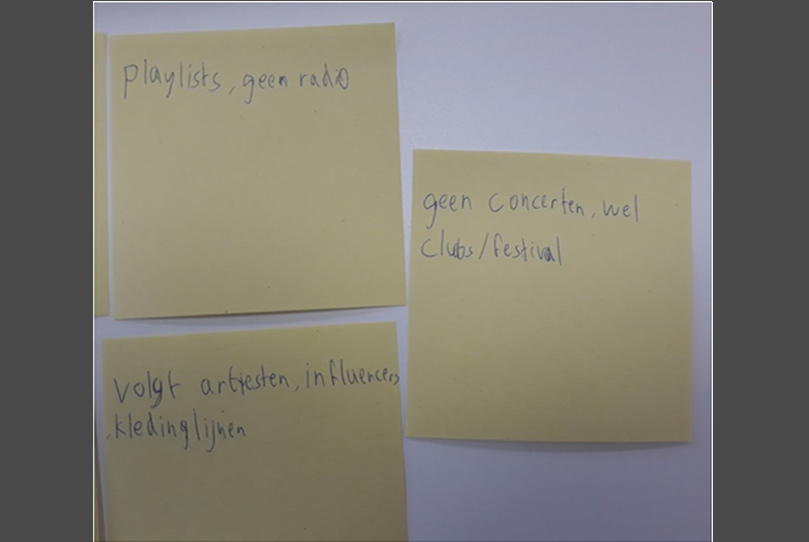 playlists, geen radio
geen concerten, wel
clubs/festival
volgt artiesten, influencers
,kledinglijnen